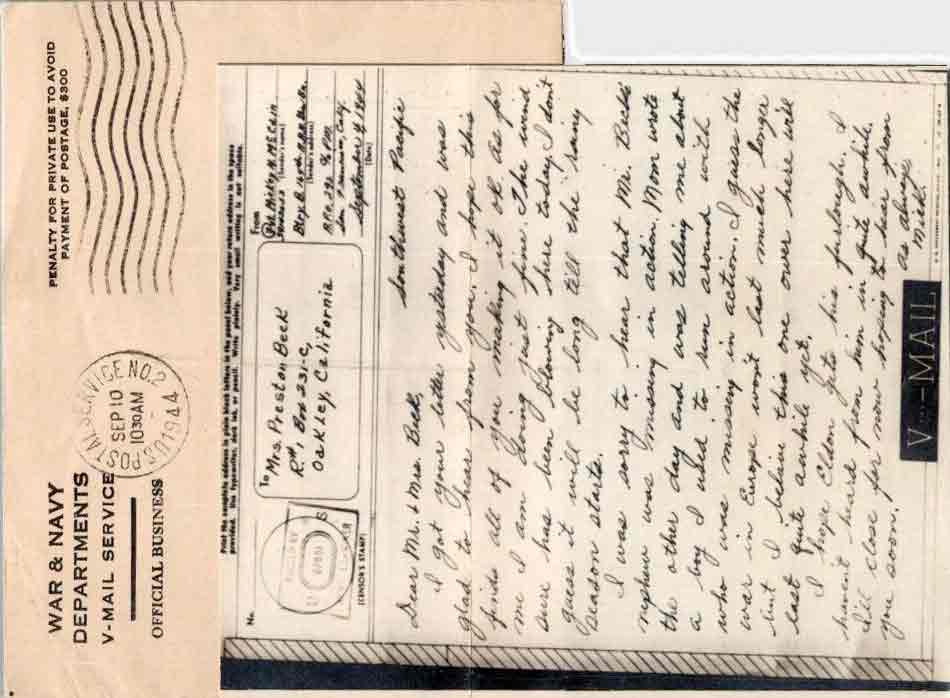 WAR & NAVY
DEPARTMENTS
V-MAIL SERVICE
OFFICIAL BUSINESS
U.S. POSTAL SERVICE NO. 2
SEP 10
1030 AM
1944
PENALTY FOR PRIVATE USE TO AVOID
PAYMENT OF POSTAGE, $300
Print the complete address in plain block letters in the panel below, and your return address in the space
provided. Use typewriter, dark ink, or pencil. Write plainly. Very small writing is not suitable.
No.
(CENSOR'S STAMP)
To Mrs. Preston Beck
Rt 1, Box 231-C,
Oakley, California
From
Pvt. N. McCain
(Sender's name)
(Sender's address)
San Francisco, Calif.
September 4 1944
(Date)
Southwest Pacific
Dear Mr. & Mrs. Beck,
I got your letter yesterday and was
glad to hear from you. I hope this
finds all of you making it ok. as for
me I am doing just fine. The wind
sure has been blowing here today. I don't
guess it will be long till the rainy
season starts.
I was sorry to hear that Mr. Beck's
nephew was missing in action. Mom wrote
the other day and was telling me about
a boy I used to run around with
who was missing in action. I guess the
war in Europe won't last much longer
but I believe this one over here will
last quite awhile yet.
I hope Eldon gets his furlough. I
havent heard from him in quite awhile.
I'll close for now hoping to hear from
you soon.
as always
Mick.
V-MAIL